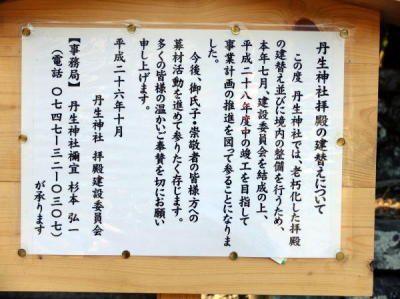 丹生神社拝殿の建替えについて
この度 丹生神社では、老朽化した拝殿
の建替え並びに境内の整備を行うため、
本年七月、建設委員会を結成の上、
平成二十八年度中の竣工を目指して
事業計画の推進を図って参ることになりま
した。
今後、御氏子・崇敬者の皆様方への
募材活動を進めて参りたく存じます。
多くの皆様の温かいご奉賛を切にお願い
申し上げます。
平成二十六年十月
丹生神社 拝殿建設委員会
【事務局】 丹生神社禰宜 杉本 弘一
(電話 〇七四七―三二―〇三〇七)
が承ります